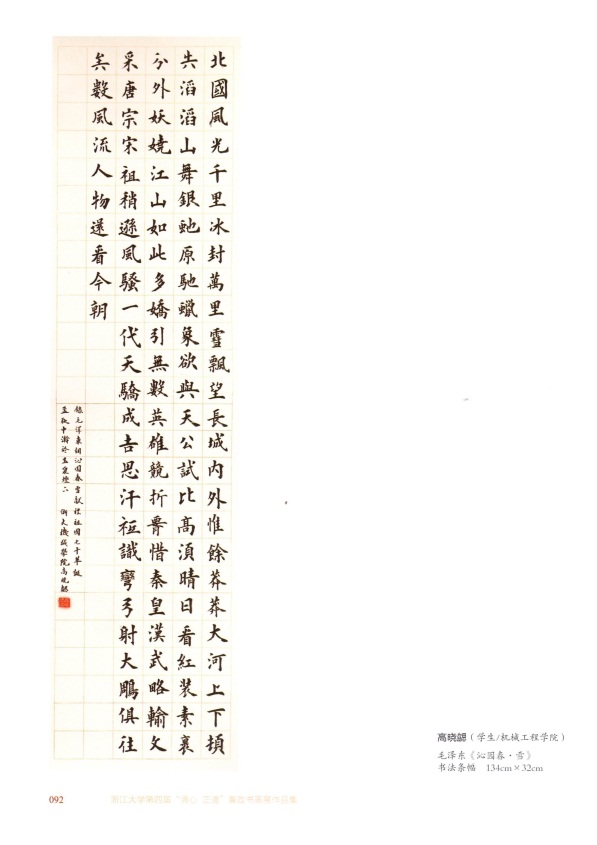 北國風光千里冰封萬里雪飄望長城內外惟餘莽莽大河上下頓
失滔滔山舞銀虵原馳蠟象欲與天公試比高須晴日看紅裝素裹
分外妖嬈江山如此多嬌引無數英雄競折腰惜秦皇漢武略輸文
采唐宗宋祖稍遜風騷一代天驕成吉思汗祗識彎弓射大鵰俱往
矣數風流人物還看今朝
錄毛澤東詞沁園春雪獻礼祖國七十華誕
孟秋中瀚於玉泉 浙大機械學院高曉勰
高晓勰（学生/机械工程学院）
毛泽东《沁园春·雪》
书法条幅 134cm×32cm
092 浙江大学第四届“清心 正道”廉政书画展作品集